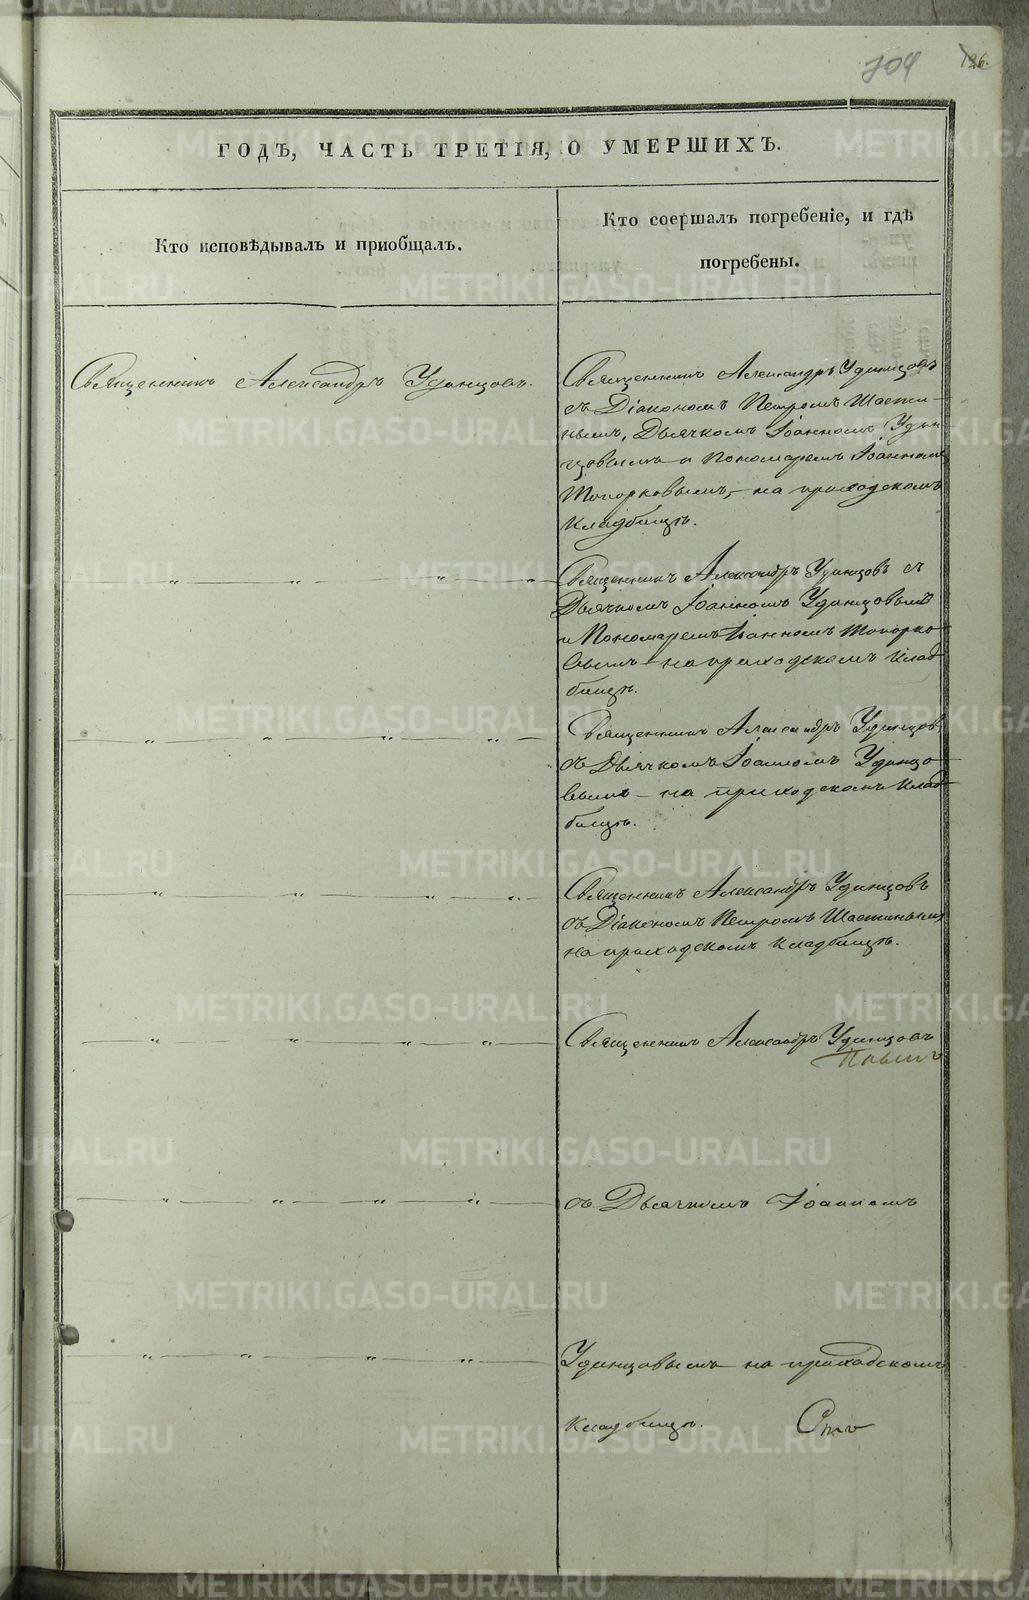 704 126.
ГОДЪ, ЧАСТЬ ТРЕТІЯ, О УМЕРШИХЪ.
Кто исповѣдывалъ и приобщалъ.
Кто соершалъ погребеніе, и гдѣ
погребены.
Священникъ Александръ Удинцовъ.
Священникъ Александръ Удинцовъ
съ Діакономъ Петромъ Шасти-
нымъ, Дьячкомъ Іоанномъ Удин
цовымъ и Пономаремъ Іоанномъ
Топорковымъ, – на приходскомъ
Кладбищѣ.
Священникъ Александръ Удинцовъ съ
Дьячкомъ Іоанномъ Удинцовымъ
и Пономаремъ Іоанномъ Топорко
вымъ – на приходскомъ Клад
бищѣ.
Священникъ Александръ Удинцов
съ Дьячкомъ Іоанномъ Удинцо
вымъ – на приходскомъ Клад
бищѣ.
Священникъ Александръ Удинцовъ
съ Діакономъ Петромъ Шастинымъ
на приходскомъ кладбищѣ.
Священникъ Александръ Удинцовъ
съ Дьячкомъ Іоанномъ
Удинцовымъ на приходскомъ
Кладбищѣ.
METRIKI.GASO-URAL.RU